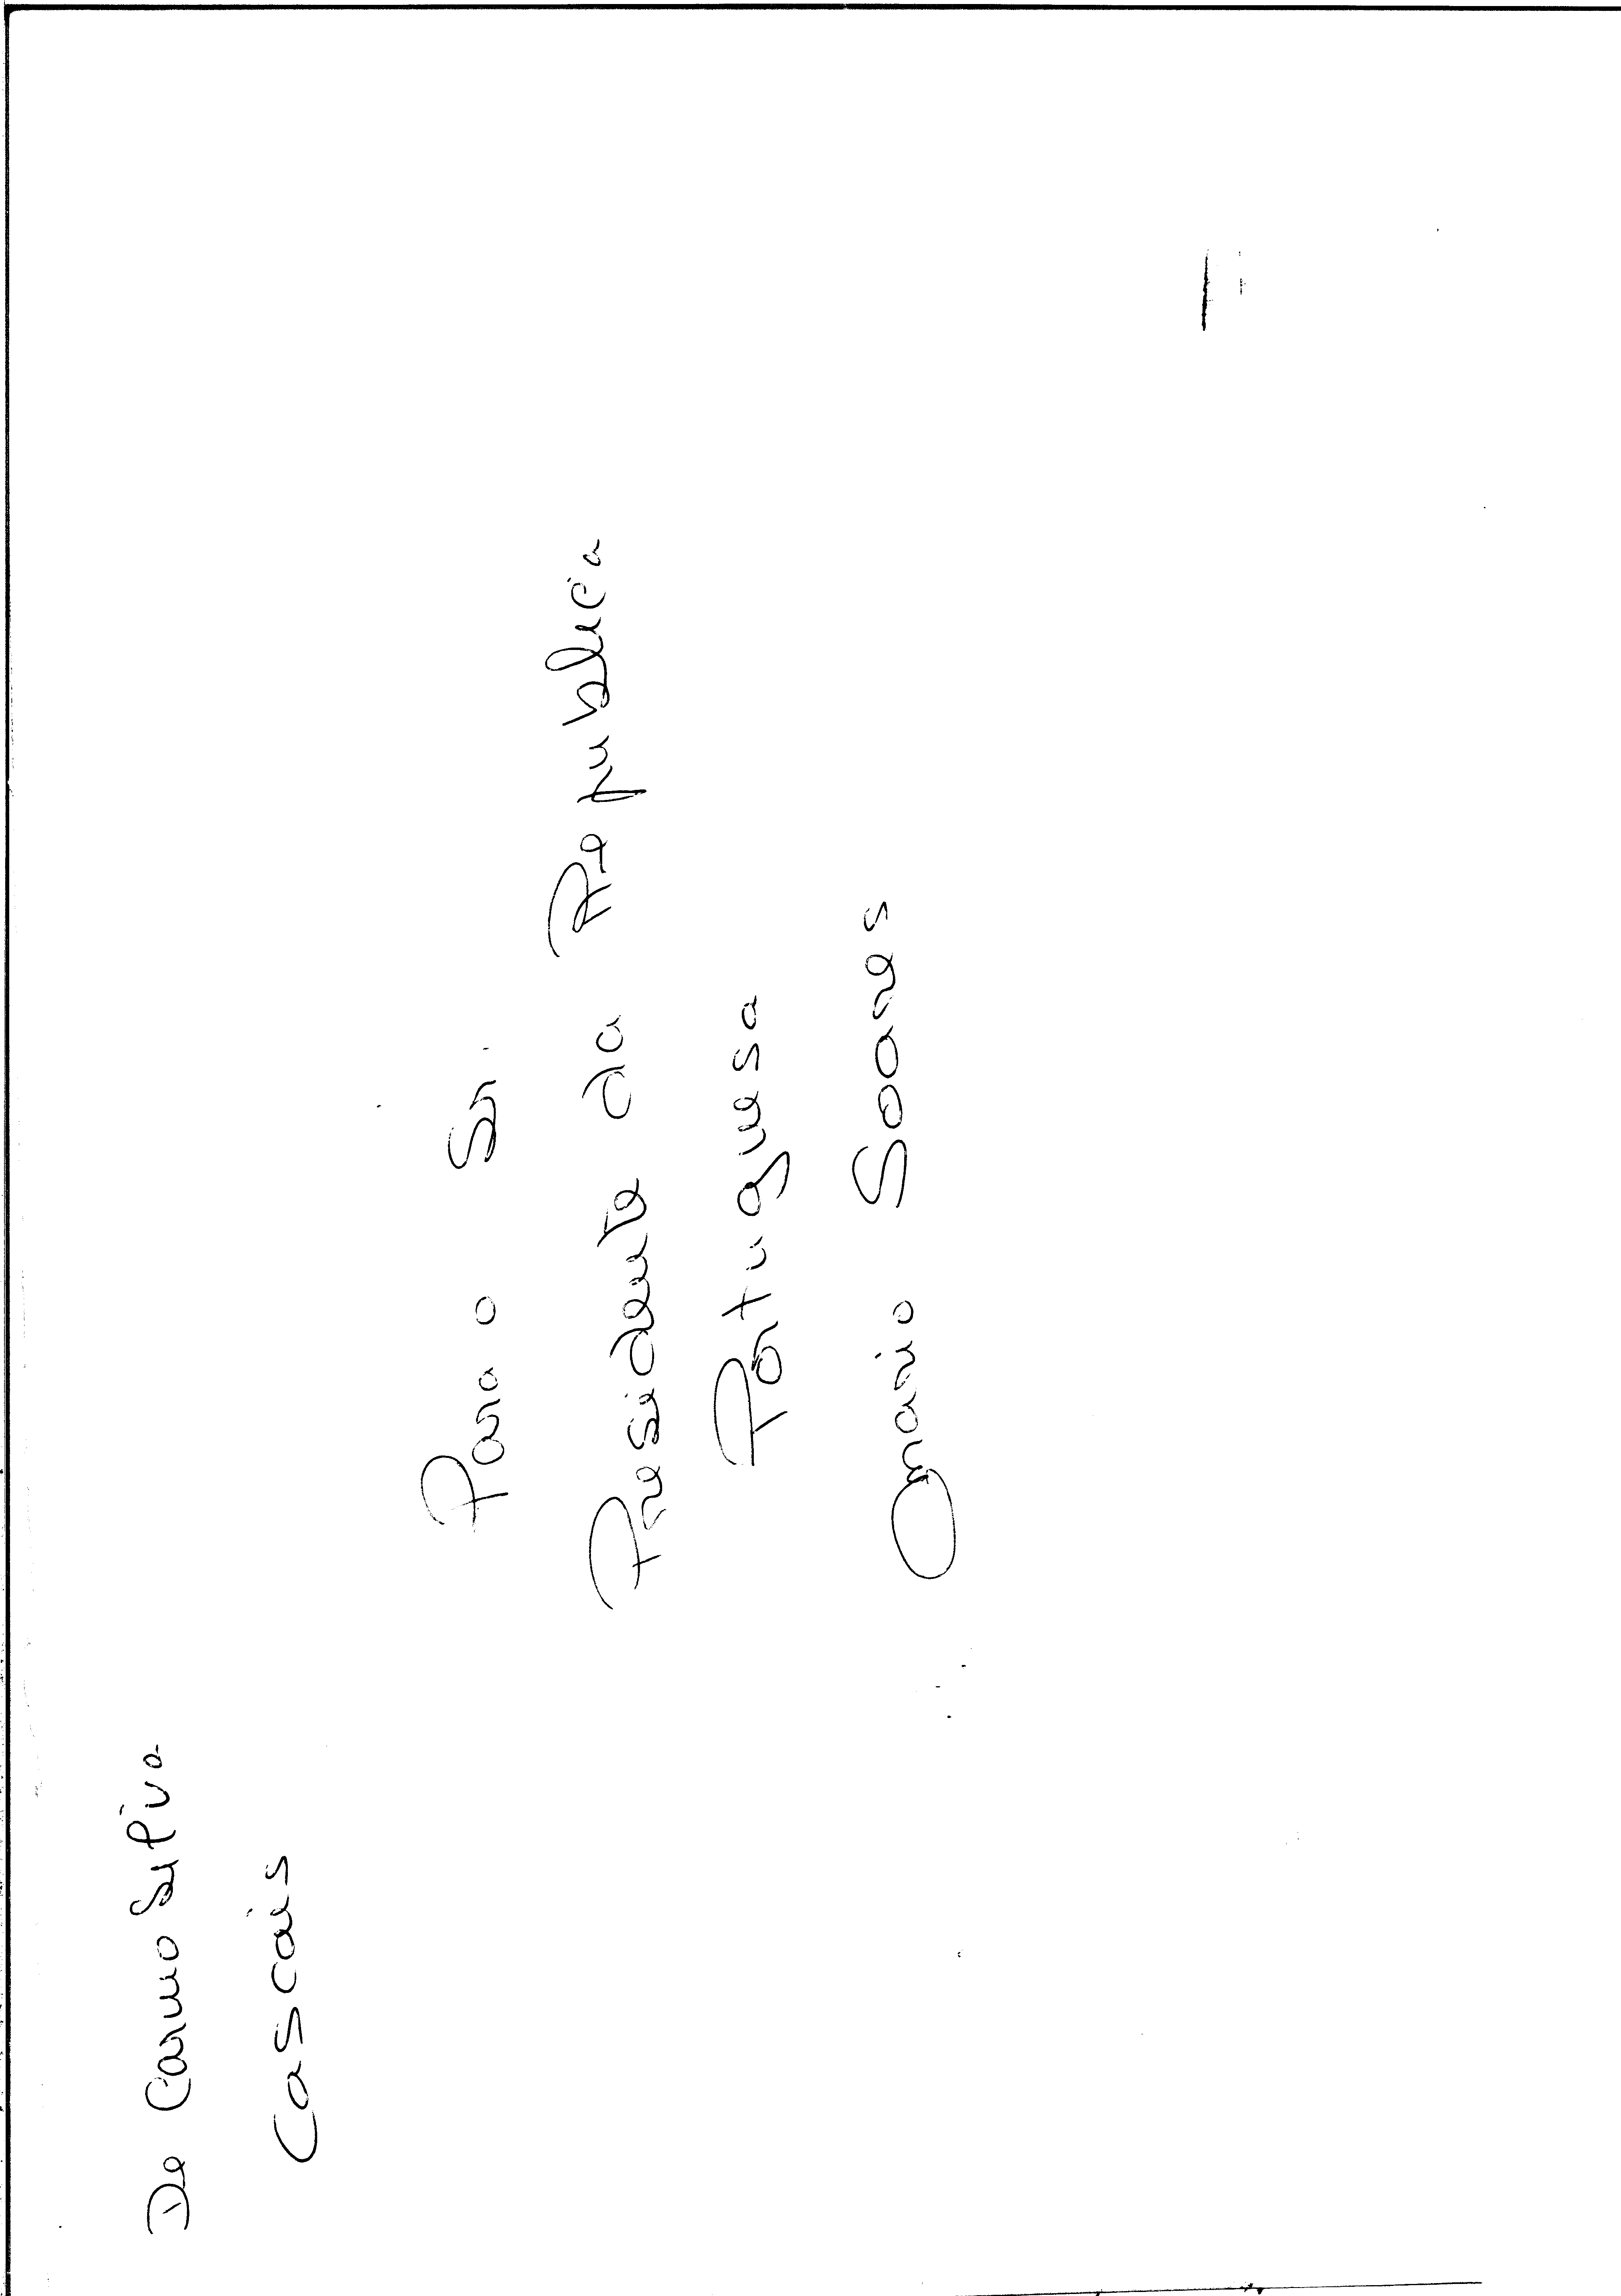 De Carmo Silva
Cascais
Para o Sr.
Presidente da Republica
Portuguesa
Mario Soares